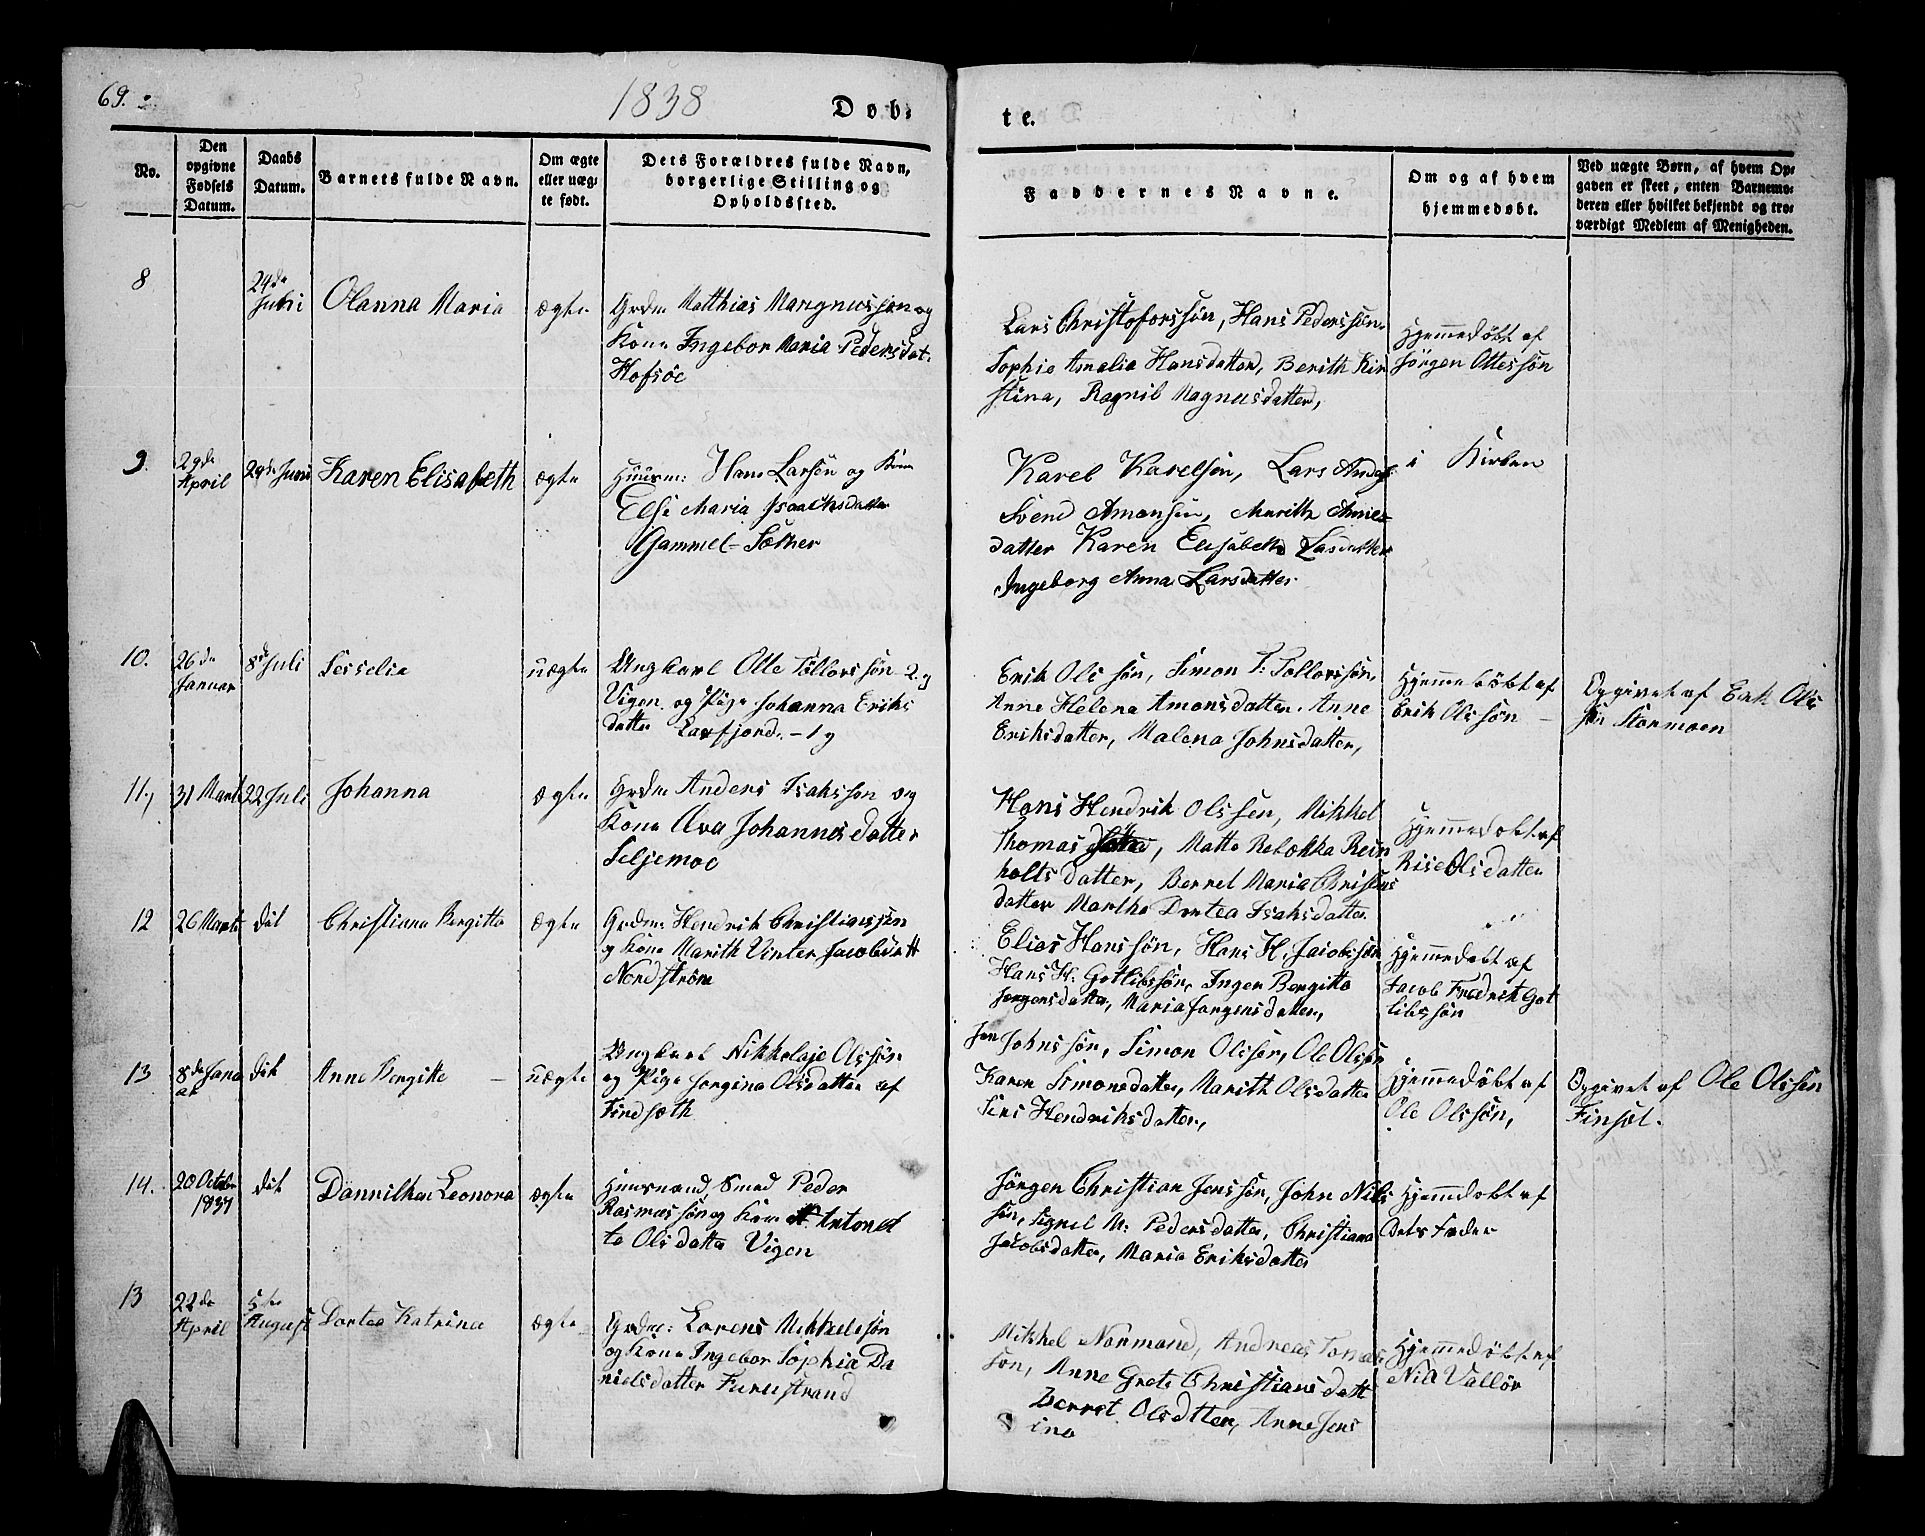 69.
1838
Døb-
te.
No.
Den opgivne Fødsels Datum.
Daabs Datum.
Barnets fulde Navn.
Om ægte eller uægte født.
Dets Forældres fulde Navn, borgerlige Stilling og Opholdssted.
Faddernes Navne.
Om og af hvem hjemmedøbt.
Ved uægte Børn, af hvem Opgaven er skeet, enten Barnemoderen eller hvilket bekjendt og troværdigt Medlem af Menigheden.
8
24de
Juni
Olanna Maria
ægte
Grdm Matthias Mangnussøn og
Kone Ingebor Maria Pedersdat.
Hofsöe
Lars Christoforssøn, Hans Pederssøn
Sophie Amalia Hansdatter, Berith Kir
stina, Ragnil Magnusdatter,
Hjemmedöbt af
Jörgen Ottessön
9.
29de
April
29de Juni
Karen Elisabeth
ægte
Huusm: Hans Larsön og Kone
Else Maria Isaachsdatter
Gammel-Sæther
Karel Karelsön, Lars Anders
Svend Amonsen, Marith Amon
datter Karen Elisabeth Lasdatter
Ingeborg Anna Larsdatter
i Kirken
10.
26de
Januar
8de Juli
Sesselia
uægte
Ungkarl Olle Tollorssön 2.g
Vigen og Pige Johanna Eriks
datter Laxfjord. -1 g
Erik Olssön, Simon P. Tollorssön,
Anne Helena Amonsdatter. Anne
Eriksdatter, Malena Johnsdatter,
Hjemmedöbt af
Erik Olssön -
Opgivet af Erik Ols
sön Stormoen
11,
31 Marts
22 Juli
Johanna
ægte
Grdm Anders Isakssøn og
Kone Eva Johannesdatter
Seljemoe
Hans Hendrik Olssen, Mikkel
Thomas datter, Matte Rebekka Rein
holtsdatter, Berret Maria Christens
datter Martha Dortea Isaksdatter
Hjemmedobt af
Rise Olsdatter
12
26 Marts
dit
Christiane Bergitte
ægte
Grdm: Hendrik Christianssen
og Kone Marith Vinter Jacobsdatt
Nordstrøm
Elias Hanssön, Hans H. Jacobssön
Hans H. Gotlibssön, Inger Bergitte
Jorgensdatter, Maria Jorgensdatter,
Hjemmedobt af
Jacob Fredrik Got
libssön
13
8de Janu
ar
dit
Anne Bergitte -
uægte
Ungkarl Nikkolaje Olssön
og Pige Jorgina Olsdatter af
Findsæth
Jon Johnssön, Simon Olssen, Ole Olssen
Karen Simonsdatter, Marith Olsdatter
Siri Hendriksdatter,
Hjemmedöbt af
Ole Olssön,
Opgivet af Ole Olssen
Finsæt.
14.
20 October
1837
dit
Dannilken Leonora
ægte
Huusmand Smed Peder
Rasmussön og Kone Antonet
te Olsdatter Vigen
Jörgen Christian Jenssön, John Nils
sön, Signel M: Pedersdatter, Christiana
Jacobsdatter, Maria Eriksdatter
Hjemmedobt af
Dets Fader
13
22de
April
5te
August
Dortea Katrina
ægte
Grdm: Lorens Mikkelssön
og Kone Ingebor Sophia Da
nielsdatter Furustrand
Mikkel Normand, Andreas Tomas
sön, Anne Grete Christiansdatt
Berret Olsdtter, Anne Jens
ina
Hjemmedöbt af
Nils Vallör